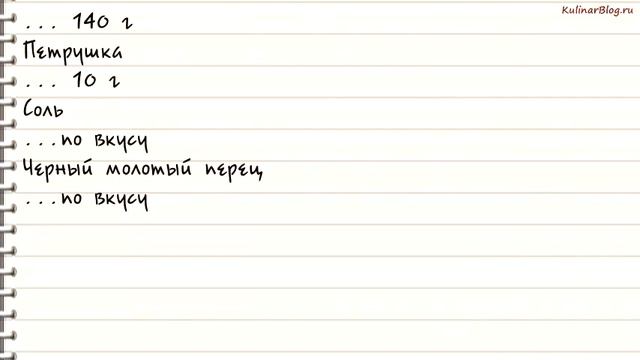 KulinarBlog.ru
... 140 г
Петрушка
... 10 г
Соль
...по вкусу
Черный молотый перец
...по вкусу